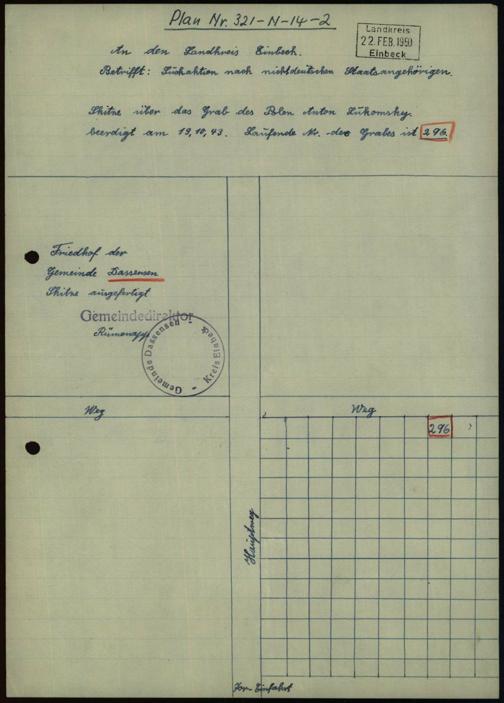 Plan Nr. 321-N-14-2
Landkreis
22. FEB. 1950
Einbeck
An den Landkreis Einbeck.
Betrifft: Suchaktion nach nichtdeutschen Staatsangehörigen.
Skitze über das Grab des Polen Anton Lukomsky.
beerdigt am 19,10,43. Laufende Nr. des Grabes ist 296.
Friedhof der
Gemeinde Dassensen
Skitze ausgefertigt
Gemeindedirektor
Gemeinde Dassensen - Kreis Einbeck -
Weg
Weg
296
Hauptweg
Einfahrt